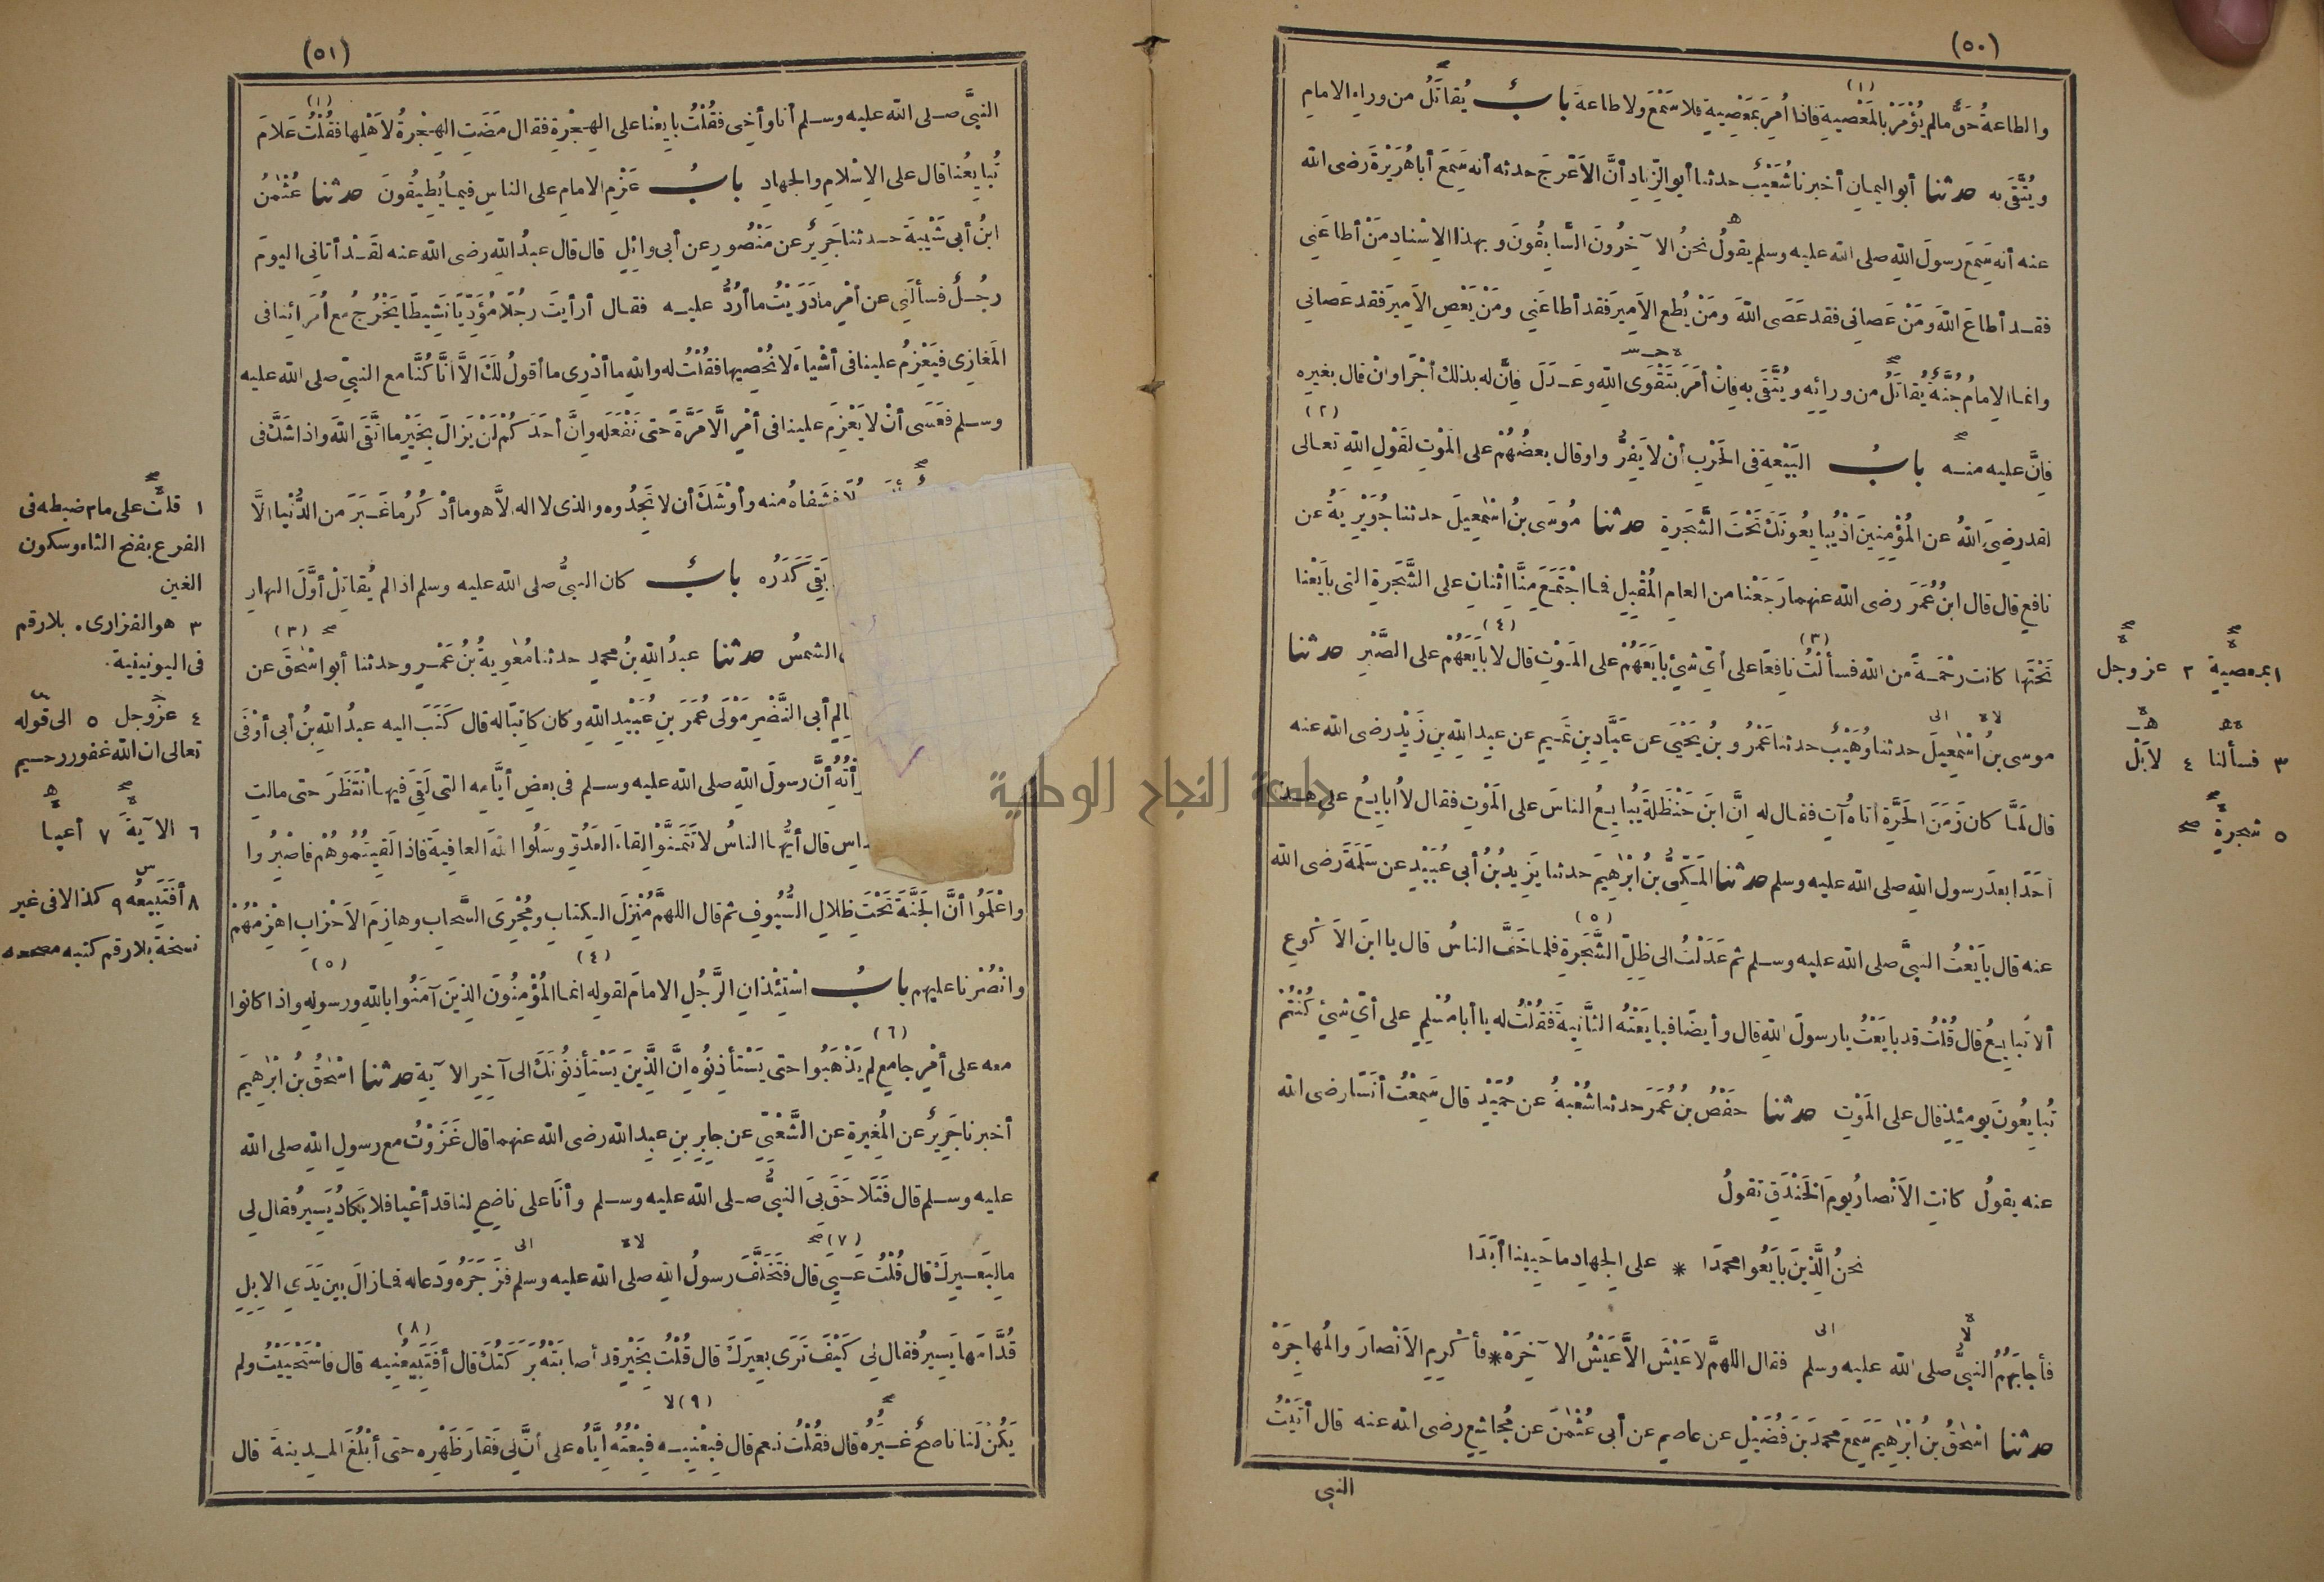 (٥٠)
والطاعةُ حَقٌّ مالم يُؤْمَرْ بالمَعْصِيةِ فاذا أُمِرَ بمَعْصِيةٍ فلا سَمْعَ ولا طاعةَ بابٌ يُقاتَلُ من وراءِ الامامِ
ويُتَّقَى به حدثنا أبو اليمانِ أخبرنا شُعَيْبٌ حدثنا أبو الزِّنادِ أنَّ الاَعْرَجَ حدثه أنه سَمِعَ أباهُرَيْرةَ رضى الله
عنه أنه سَمِعَ رسولَ اللهِ صلى الله عليه وسلم يقولُ نحنُ الآخِرُونَ السَّابِقُونَ وبهذا الاِسْنادِ مَنْ أطاعَنِى
فقد أطاعَ اللهَ ومَنْ عَصانِى فقد عَصَى اللهَ ومَنْ يُطِعِ الاَمِيرَ فقد أطاعَنِى ومَنْ يَعْصِ الاَمِيرَ فقد عَصانِى
وانما الاِمامُ جُنَّةٌ يُقاتَلُ من ورائِه ويُتَّقَى به فاِنْ أمَرَ بتَقْوَى اللهِ وعَدَلَ فاِنَّ له بذلك أجْرًا وانْ قال بغيرِه
فاِنَّ عليه منه بابُ البَيْعةِ فى الحَرْبِ أنْ لا يَفِرُّوا وقال بعضُهُمْ على المَوْتِ لقَوْلِ اللهِ تعالى
لقد رضِىَ اللهُ عن المُؤْمِنِينَ اذْ يُبايِعُونَكَ تَحْتَ الشَّجَرةِ حدثنا مُوسَى بنُ اسْمٰعِيلَ حدثنا جُوَيْرِيَةُ عن
نافِعٍ قال قال ابنُ عُمَرَ رضى الله عنهما رَجَعْنا من العامِ المُقْبِلِ فما اجْتَمَعَ مِنَّا اثْنانِ على الشَّجَرةِ التى بايَعْنا
تَحْتَها كانت رَحْمَةً من اللهِ فسألْتُ نافِعًا على أىِّ شىْءٍ بايَعَهُمْ على المَوْتِ قال لا بايَعَهُمْ على الصَّبْرِ حدثنا
موسى بنُ اسْمٰعِيلَ حدثنا وُهَيْبٌ حدثنا عَمْرُو بنُ يَحْيَى عن عَبَّادِ بنِ تَمِيمٍ عن عبدِ اللهِ بنِ زَيْدٍ رضى الله عنه
قال لَمَّا كان زَمَنَ الحَرَّةِ أتاهُ آتٍ فقال له اِنَّ ابنَ حَنْظَلةَ يُبايِعُ الناسَ على المَوْتِ فقال لا أُبايِعُ على هذا
أحَدًا بعدَ رسولِ اللهِ صلى الله عليه وسلم حدثنا المَكِّىُّ بنُ ابْرٰهِيمَ حدثنا يَزِيدُ بنُ أبى عُبَيْدٍ عن سَلَمَةَ رضى الله
عنه قال بايَعْتُ النبىَّ صلى الله عليه وسلم ثم عَدَلْتُ الى ظِلِّ الشَّجَرةِ فلما خَفَّ الناسُ قال يا ابنَ الاَكْوَعِ
ألا تُبايِعُ قال قُلْتُ قد بايَعْتُ يا رسولَ اللهِ قال وأيضًا فبايَعْتُه الثَّانِيةَ فقُلْتُ له يا أبا مُسْلِمٍ على أىِّ شىْءٍ كُنْتُمْ
تُبايِعُونَ يومئِذٍ قال على المَوْتِ حدثنا حَفْصُ بنُ عُمَرَ حدثنا شُعْبةُ عن حُمَيْدٍ قال سَمِعْتُ أنَسًا رضى الله
عنه يقولُ كانتِ الاَنْصارُ يومَ الخَنْدَقِ تقولُ
نحنُ الَّذِينَ بايَعُوا محمدًا * على الجِهادِ ما حَيِينا أبَدًا
فأجابَهُمُ النبىُّ صلى الله عليه وسلم فقال اللهمَّ لا عَيْشَ الاَّ عَيْشُ الآخِرَهْ * فأكْرِمِ الاَنْصارَ والمُهاجِرَهْ
حدثنا اسْحٰقُ بنُ ابْرٰهِيمَ سَمِعَ محمدَ بنَ فُضَيْلٍ عن عاصِمٍ عن أبى عُثْمٰنَ عن مُجاشِعٍ رضى الله عنه قال أتَيْتُ
النبى
١ بمعصية ٢ عز وجل
٣ فسألنا ٤ لا بَلْ
٥ شجرة
(٥١)
النبىَّ صلى الله عليه وسلم أنا وأخِى فقُلْتُ بايِعْنا على الهِجْرةِ فقال مَضَتِ الهِجْرةُ لاَهْلِها فقُلْتُ عَلامَ
تُبايِعُنا قال على الاِسْلامِ والجهادِ بابُ عَزْمِ الامامِ على الناسِ فيما يُطِيقُونَ حدثنا عُثْمٰنُ
ابنُ أبى شَيْبةَ حدثنا جَرِيرٌ عن مَنْصُورٍ عن أبى وائِلٍ قال قال عبدُ اللهِ رضى الله عنه لقَدْ أتانِى اليومَ
رجُلٌ فسألَنِى عن أمْرٍ ما دَرَيْتُ ما أرُدُّ عليه فقال أرأيتَ رجُلًا مُؤْدِيًا نَشِيطًا يَخْرُجُ مع أُمَرائِنا فى
المَغازِى فيَعْزِمُ علينا فى أشْياءَ لا نُحْصِيها فقُلْتُ له واللهِ ما أدْرِى ما أقولُ لَكَ الاَّ أنَّا كُنَّا مع النبىِّ صلى الله عليه
وسلم فعَسَى أنْ لا يَعْزِمَ علينا فى أمْرٍ الاَّ مَرَّةً حتى نَفْعَلَه واِنَّ أحَدَكُمْ لَنْ يَزالَ بخَيْرٍ ما اتَّقَى اللهَ واذا شَكَّ فى
فشَفاهُ منه وأوْشَكَ أن لا تَجِدُوه والذى لا اله الاَّ هو ما أذْكُرُ ما غَبَرَ من الدُّنْيا الاَّ
بَقِىَ كَدَرُه بابٌ كان النبىُّ صلى الله عليه وسلم اذا لم يُقاتِلْ أوَّلَ النهارِ
الشمسُ حدثنا عبدُ اللهِ بنُ محمدٍ حدثنا مُعٰوِيةُ بنُ عَمْرٍو حدثنا أبو اسْحٰقَ عن
أبى النَّضْرِ مَوْلَى عُمَرَ بنِ عُبَيْدِ اللهِ وكان كاتِبًا له قال كَتَبَ اليه عبدُ اللهِ بنُ أبى أوْفَى
أنَّ رسولَ اللهِ صلى الله عليه وسلم فى بعضِ أيَّامِه التى لَقِىَ فيها انْتَظَرَ حتى مالتِ
قال أيُّها الناسُ لا تَتَمَنَّوْا لِقاءَ العَدُوِّ وسَلُوا اللهَ العافِيةَ فاذا لَقِيتُمُوهُمْ فاصْبِرُوا
واعْلَمُوا أنَّ الجَنَّةَ تَحْتَ ظِلالِ السُّيُوفِ ثم قال اللهمَّ مُنْزِلَ الكتابِ ومُجْرِىَ السَّحابِ وهازِمَ الاَحْزابِ اهْزِمْهُمْ
وانْصُرْنا عليهم بابُ اسْتِئْذانِ الرَّجُلِ الامامَ لقوله انما المُؤْمِنُونَ الذِينَ آمَنُوا باللهِ ورسولِه واذا كانوا
معه على أمْرٍ جامِعٍ لم يَذْهَبُوا حتى يَسْتأذِنُوه اِنَّ الَّذِينَ يَسْتأذِنُونَكَ الى آخِرِ الآيةِ حدثنا اسْحٰقُ بنُ ابْرٰهِيمَ
أخبرنا جَرِيرٌ عن المُغِيرةِ عن الشَّعْبِىِّ عن جابِرِ بنِ عبدِ الله رضى الله عنهما قال غَزَوْتُ مع رسولِ اللهِ صلى الله
عليه وسلم قال فَتَلاحَقَ بِىَ النبىُّ صلى الله عليه وسلم وأنا على ناضِحٍ لنا قد أعْيا فلا يَكادُ يَسِيرُ فقال لى
ما لِبَعِيرِكَ قال قُلْتُ عَيِىَ قال فتَخَلَّفَ رسولُ اللهِ صلى الله عليه وسلم فزَجَرَهُ ودَعا له فما زالَ بين يَدَىِ الاِبِلِ
قُدَّامَها يَسِيرُ فقال لى كَيْفَ تَرَى بعِيرَكَ قال قُلْتُ بخَيْرٍ قد أصابَتْهُ بَرَكَتُكَ قال أفَتَبِيعُنِيه قال فاسْتَحْيَيْتُ ولم
يَكُنْ لَنا ناضِحٌ غَيْرُه قال فقُلْتُ نعم قال فبِعْنِيه فبِعْتُه اِيَّاه على أنَّ لِى فَقارَ ظَهْرِه حتى أبْلُغَ المدينةَ قال
١ قلت على مام ضبطه فى
الفرع بفتح الثاء وسكون
الغين
٣ هو الفزارى . بلا رقم
فى اليونينية .
٤ عز وجل ٥ الى قوله
تعالى ان الله غفور رحيم
٦ الآية ٧ أعيا
٨ أفتبيعه ٩ كذا لا فى غير
نسخة بلا رقم كتبه مصححه
جامعة النجاح الوطنية